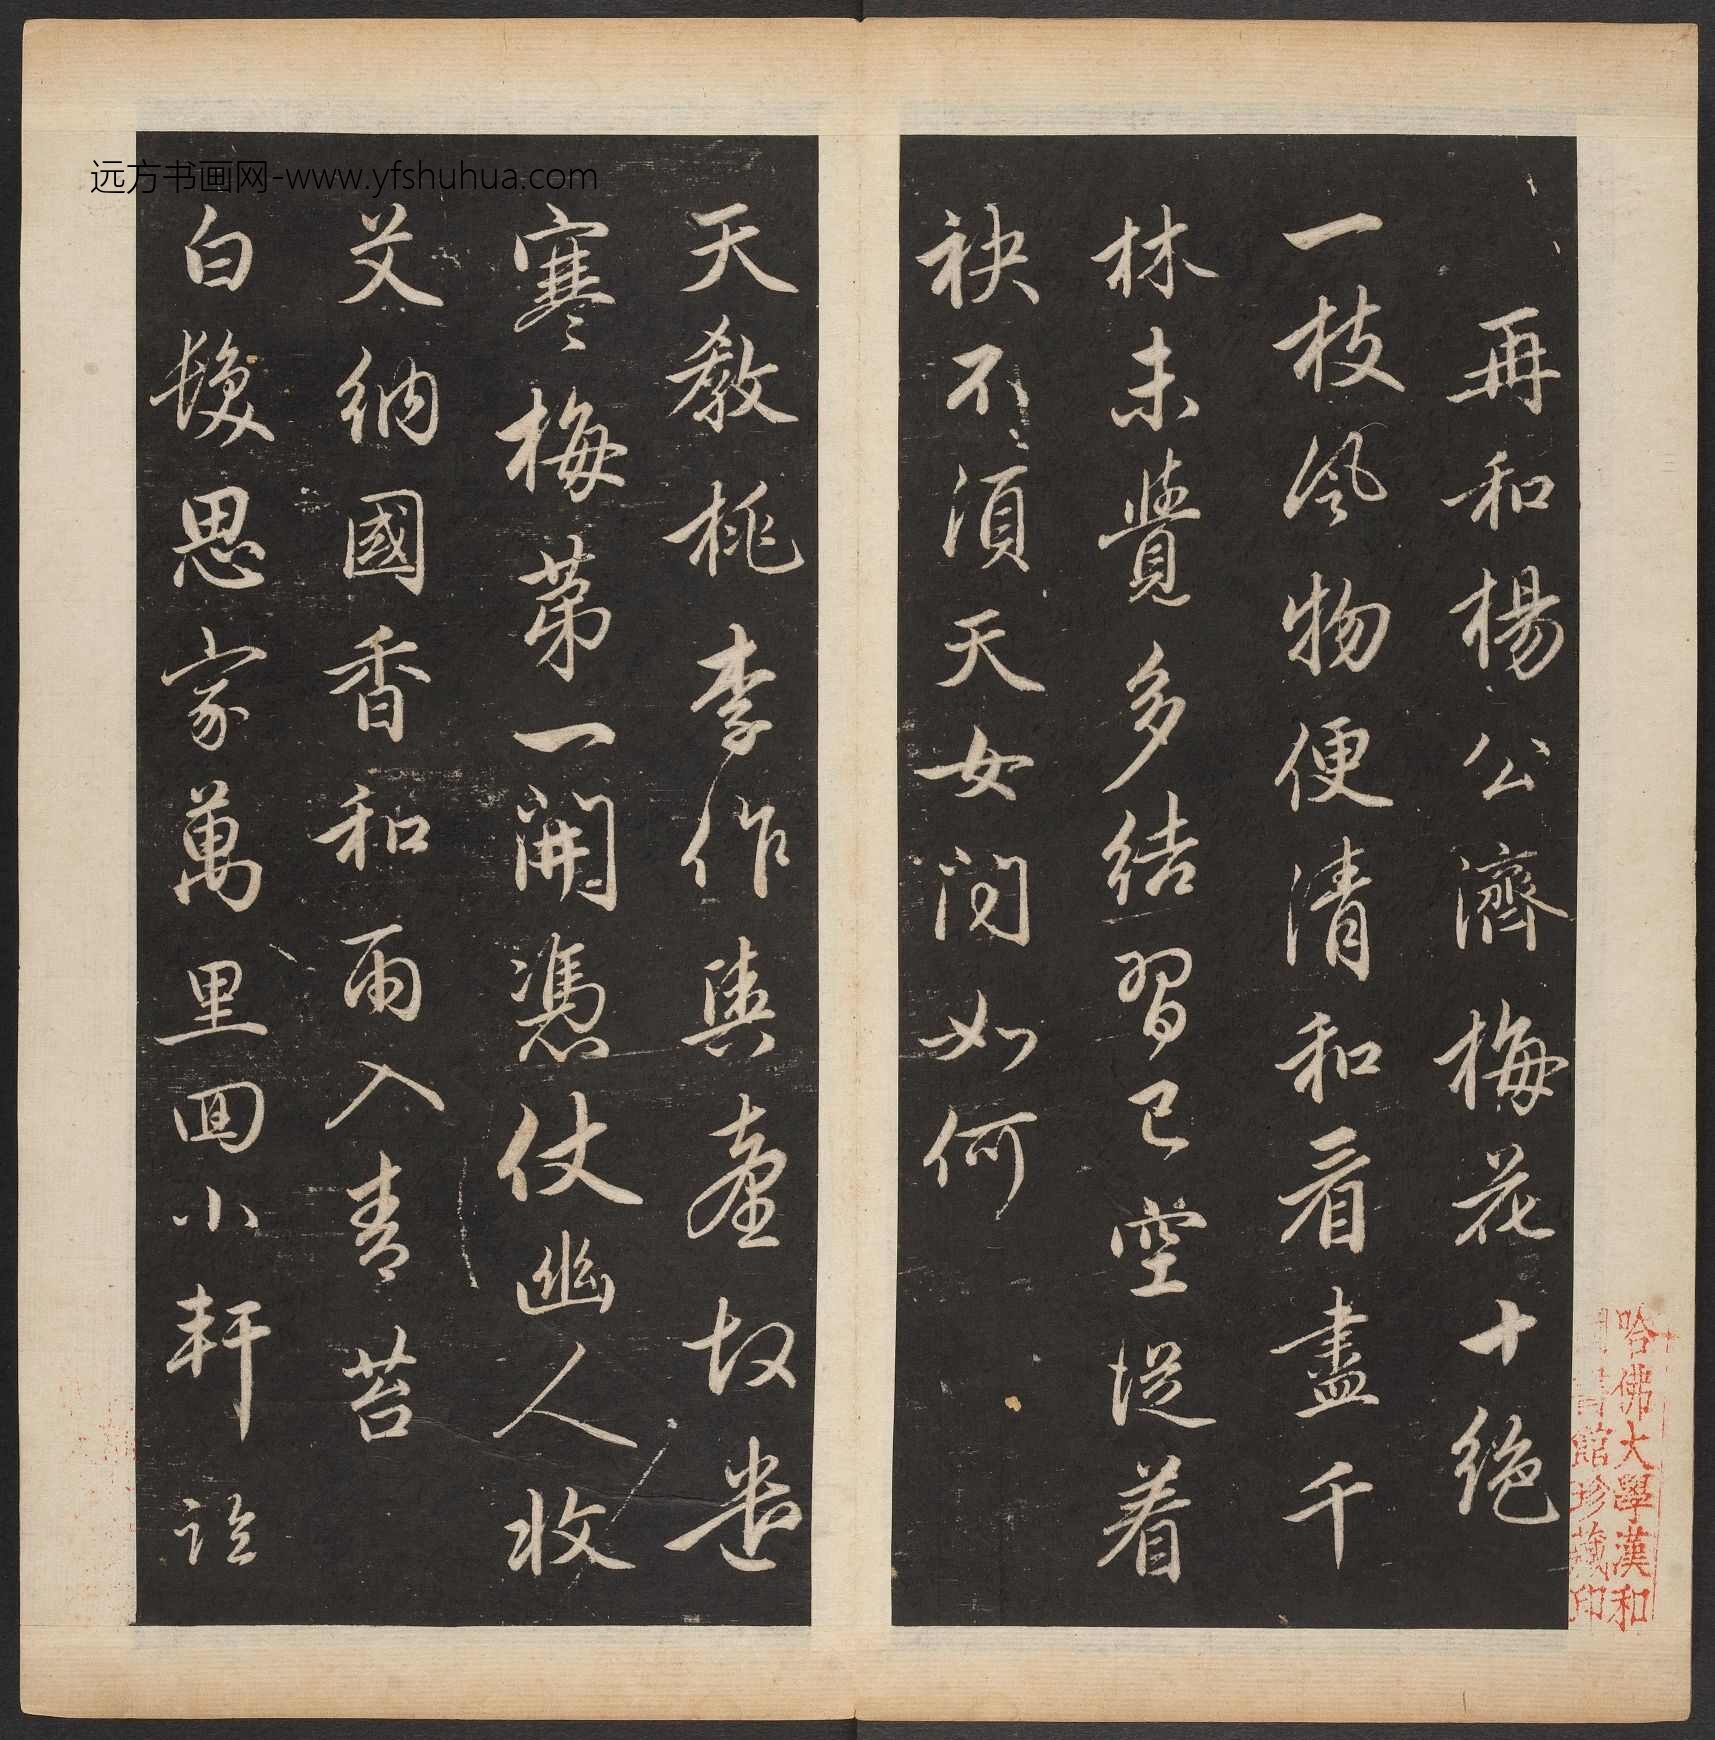 再和楊公濟梅花十絕
一枝風物便清和看盡千
林未覺多結習已空從着
袂不須天女問如何
天教桃李作輿臺故遣
寒梅第一開憑仗幽人收
艾納國香和雨入青苔
白髮思家萬里回小軒臨
哈佛大學漢和
圖書館珍藏印
远方书画网-www.yfshuhua.com